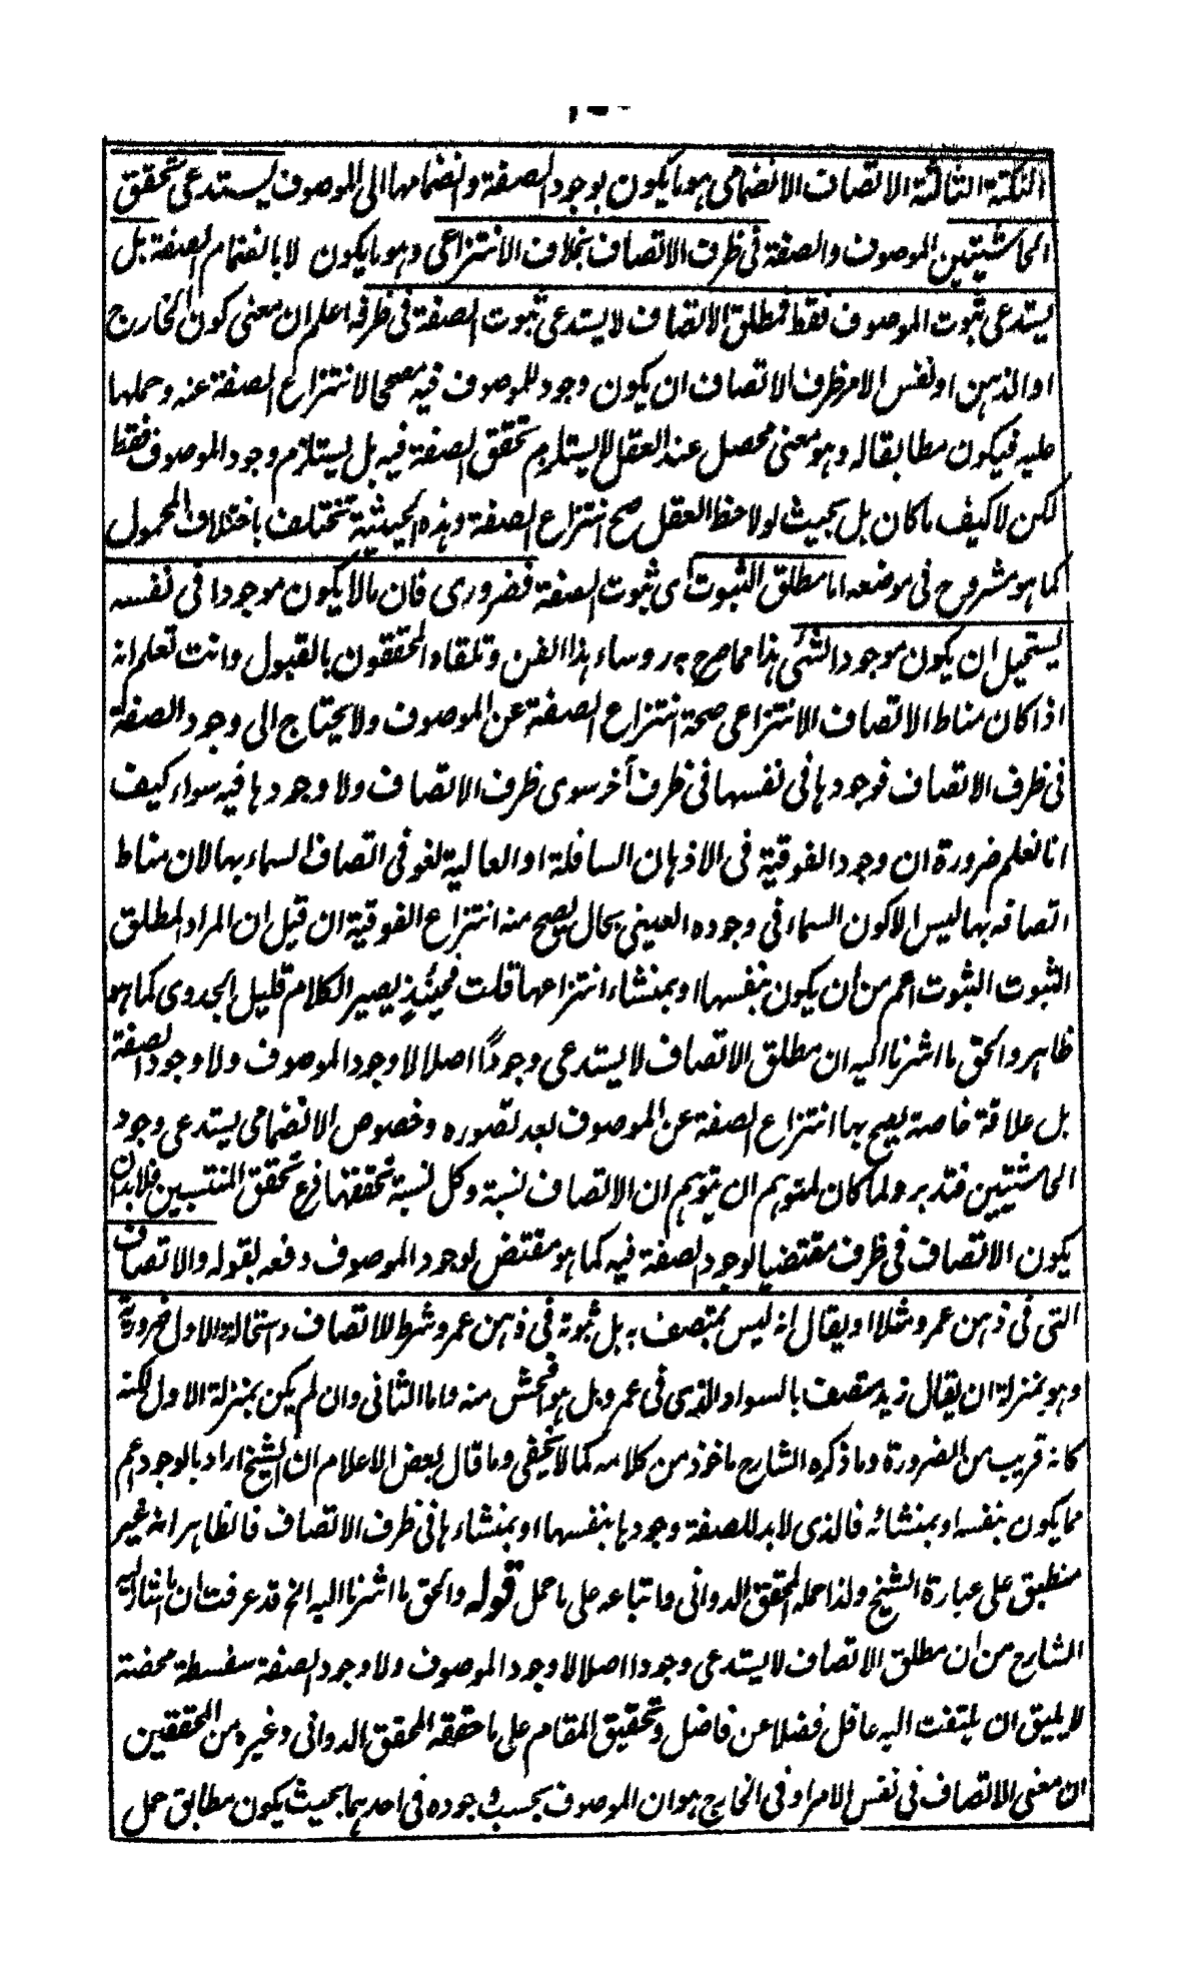 النكتة الثالثة الاتصاف الانضمامى هو ما يكون بوجود الصفة وانضمامها الى الموصوف يستدعى تحقق
الحاشيتين الموصوف والصفة فى ظرف الاتصاف بخلاف الانتزاعى وهو ما يكون لا بانضمام الصفة بل
يستدعى ثبوت الموصوف فقط فمطلق الاتصاف لا يستدعى ثبوت الصفة فى ظرفه اعلم ان معنى كون الخارج
او الذهن او نفس الامر ظرف الاتصاف ان يكون وجود للموصوف فيه مصححا لانتزاع الصفة عنه وحملها
عليه فيكون مطابقا له وهو معنى محصل عند العقل لا يستلزم تحقق الصفة فيه بل يستلزم وجود الموصوف فقط
لكن لا كيف ما كان بل بحيث لو لاحظ العقل صح انتزاع الصفة وهذه الحيثية تختلف باختلاف المحمول
كما هو مشروح فى موضعه اما مطلق الثبوت اى ثبوت الصفة فضرورى فان ما لا يكون موجودا فى نفسه
يستحيل ان يكون موجودا لشئ هذا مما صرح به روساء هذا الفن وتلقاه المحققون بالقبول وانت تعلم انه
اذا كان مناط الاتصاف الانتزاعى صحة انتزاع الصفة عن الموصوف ولا يحتاج الى وجود الصفة
فى ظرف الاتصاف فوجودها فى نفسها فى ظرف آخر سوى ظرف الاتصاف ولا وجودها فيه سواء كيف
انا نعلم ضرورة ان وجود الفوقية فى الاذهان السافلة او العالية لغو فى اتصاف السماء بها لان مناط
اتصافه بها ليس الا كون السماء فى وجوده العينى بحال يصح منه انتزاع الفوقية ان قيل ان المراد لمطلق
الثبوت الثبوت اعم من ان يكون بنفسها او بمنشاء انتزاعها قلت فحينئذ يصير الكلام قليل الجدوى كما هو
ظاهر والحق ما اشرنا اليه ان مطلق الاتصاف لا يستدعى وجودًا اصلا لا وجود الموصوف ولا وجود الصفة
بل علاقة خاصة يصح بها انتزاع الصفة عن الموصوف بعد تصوره وخصوص الانضمامى يستدعى وجود
الحاشيتين فتدبر ولما كان لمتوهم ان يتوهم ان الاتصاف نسبة وكل نسبة تحققها فرع تحقق المنتسبين فلا بد ان
يكون الاتصاف فى ظرف مقتضيا لوجود الصفة فيه كما هو مقتض لوجود الموصوف دفعه بقوله والاتصاف
التى فى ذهن عمرو مثلا او يقال انه ليس بمتصف به بل ثبوته فى ذهن عمرو شرط للاتصاف واستحالة الاول ضرورية
وهو بمنزلة ان يقال زيد متصف بالسواد الذى فى عمرو بل هو افحش منه واما الثانى وان لم يكن بمنزلة الاول لكنه
كانه قريب من الضرورة وما ذكره الشارح ماخوذ من كلامه كما لا يخفى وما قال بعض الاعلام ان الشيخ اراد بالوجود اعم
مما يكون بنفسه او بمنشائه فالذى لا بد للصفة وجودها بنفسها او بمنشاءها فى ظرف الاتصاف فالظاهر انه غير
منطبق على عبارة الشيخ ولذا حمله المحقق الدوانى واتباعه على ما حمل قوله والحق ما اشرنا اليه الخ قد عرفت ان ما اشار اليه
الشارح من ان مطلق الاتصاف لا يستدعى وجودا اصلا لا وجود الموصوف ولا وجود الصفة سفسطة محضة
لا يليق ان يلتفت اليه عاقل فضلا عن فاضل وتحقيق المقام على ما حققه المحقق الدوانى وغيره من المحققين
ان معنى الاتصاف فى نفس الامر او فى الخارج هو ان الموصوف بحسب وجوده فى احدهما بحيث يكون مطابق حمل